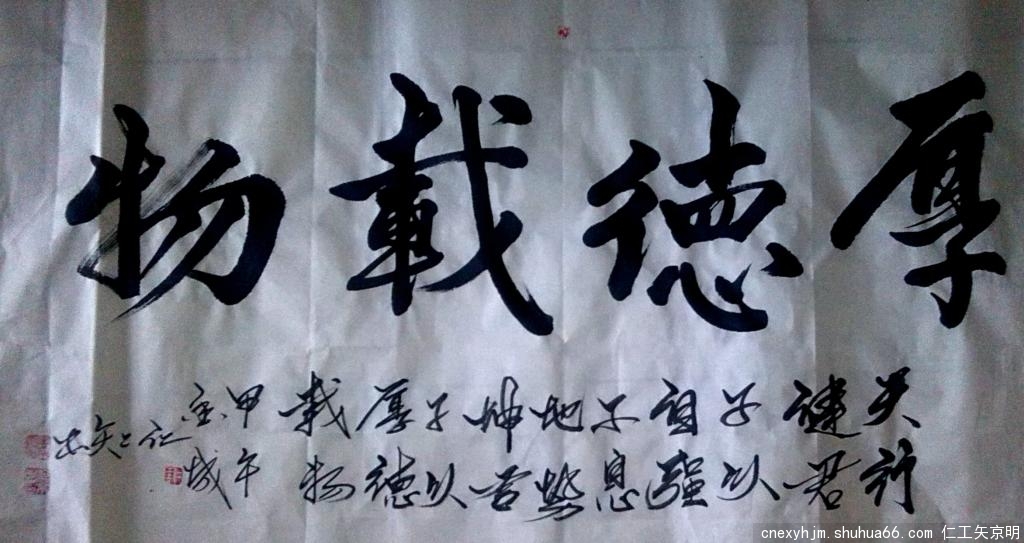 厚德載物
天行
健君
子以
自强
不息
地势
坤君
子以
厚德
載物
甲午
城
cnexyhjm.shuhua66.com 仁工矢京明